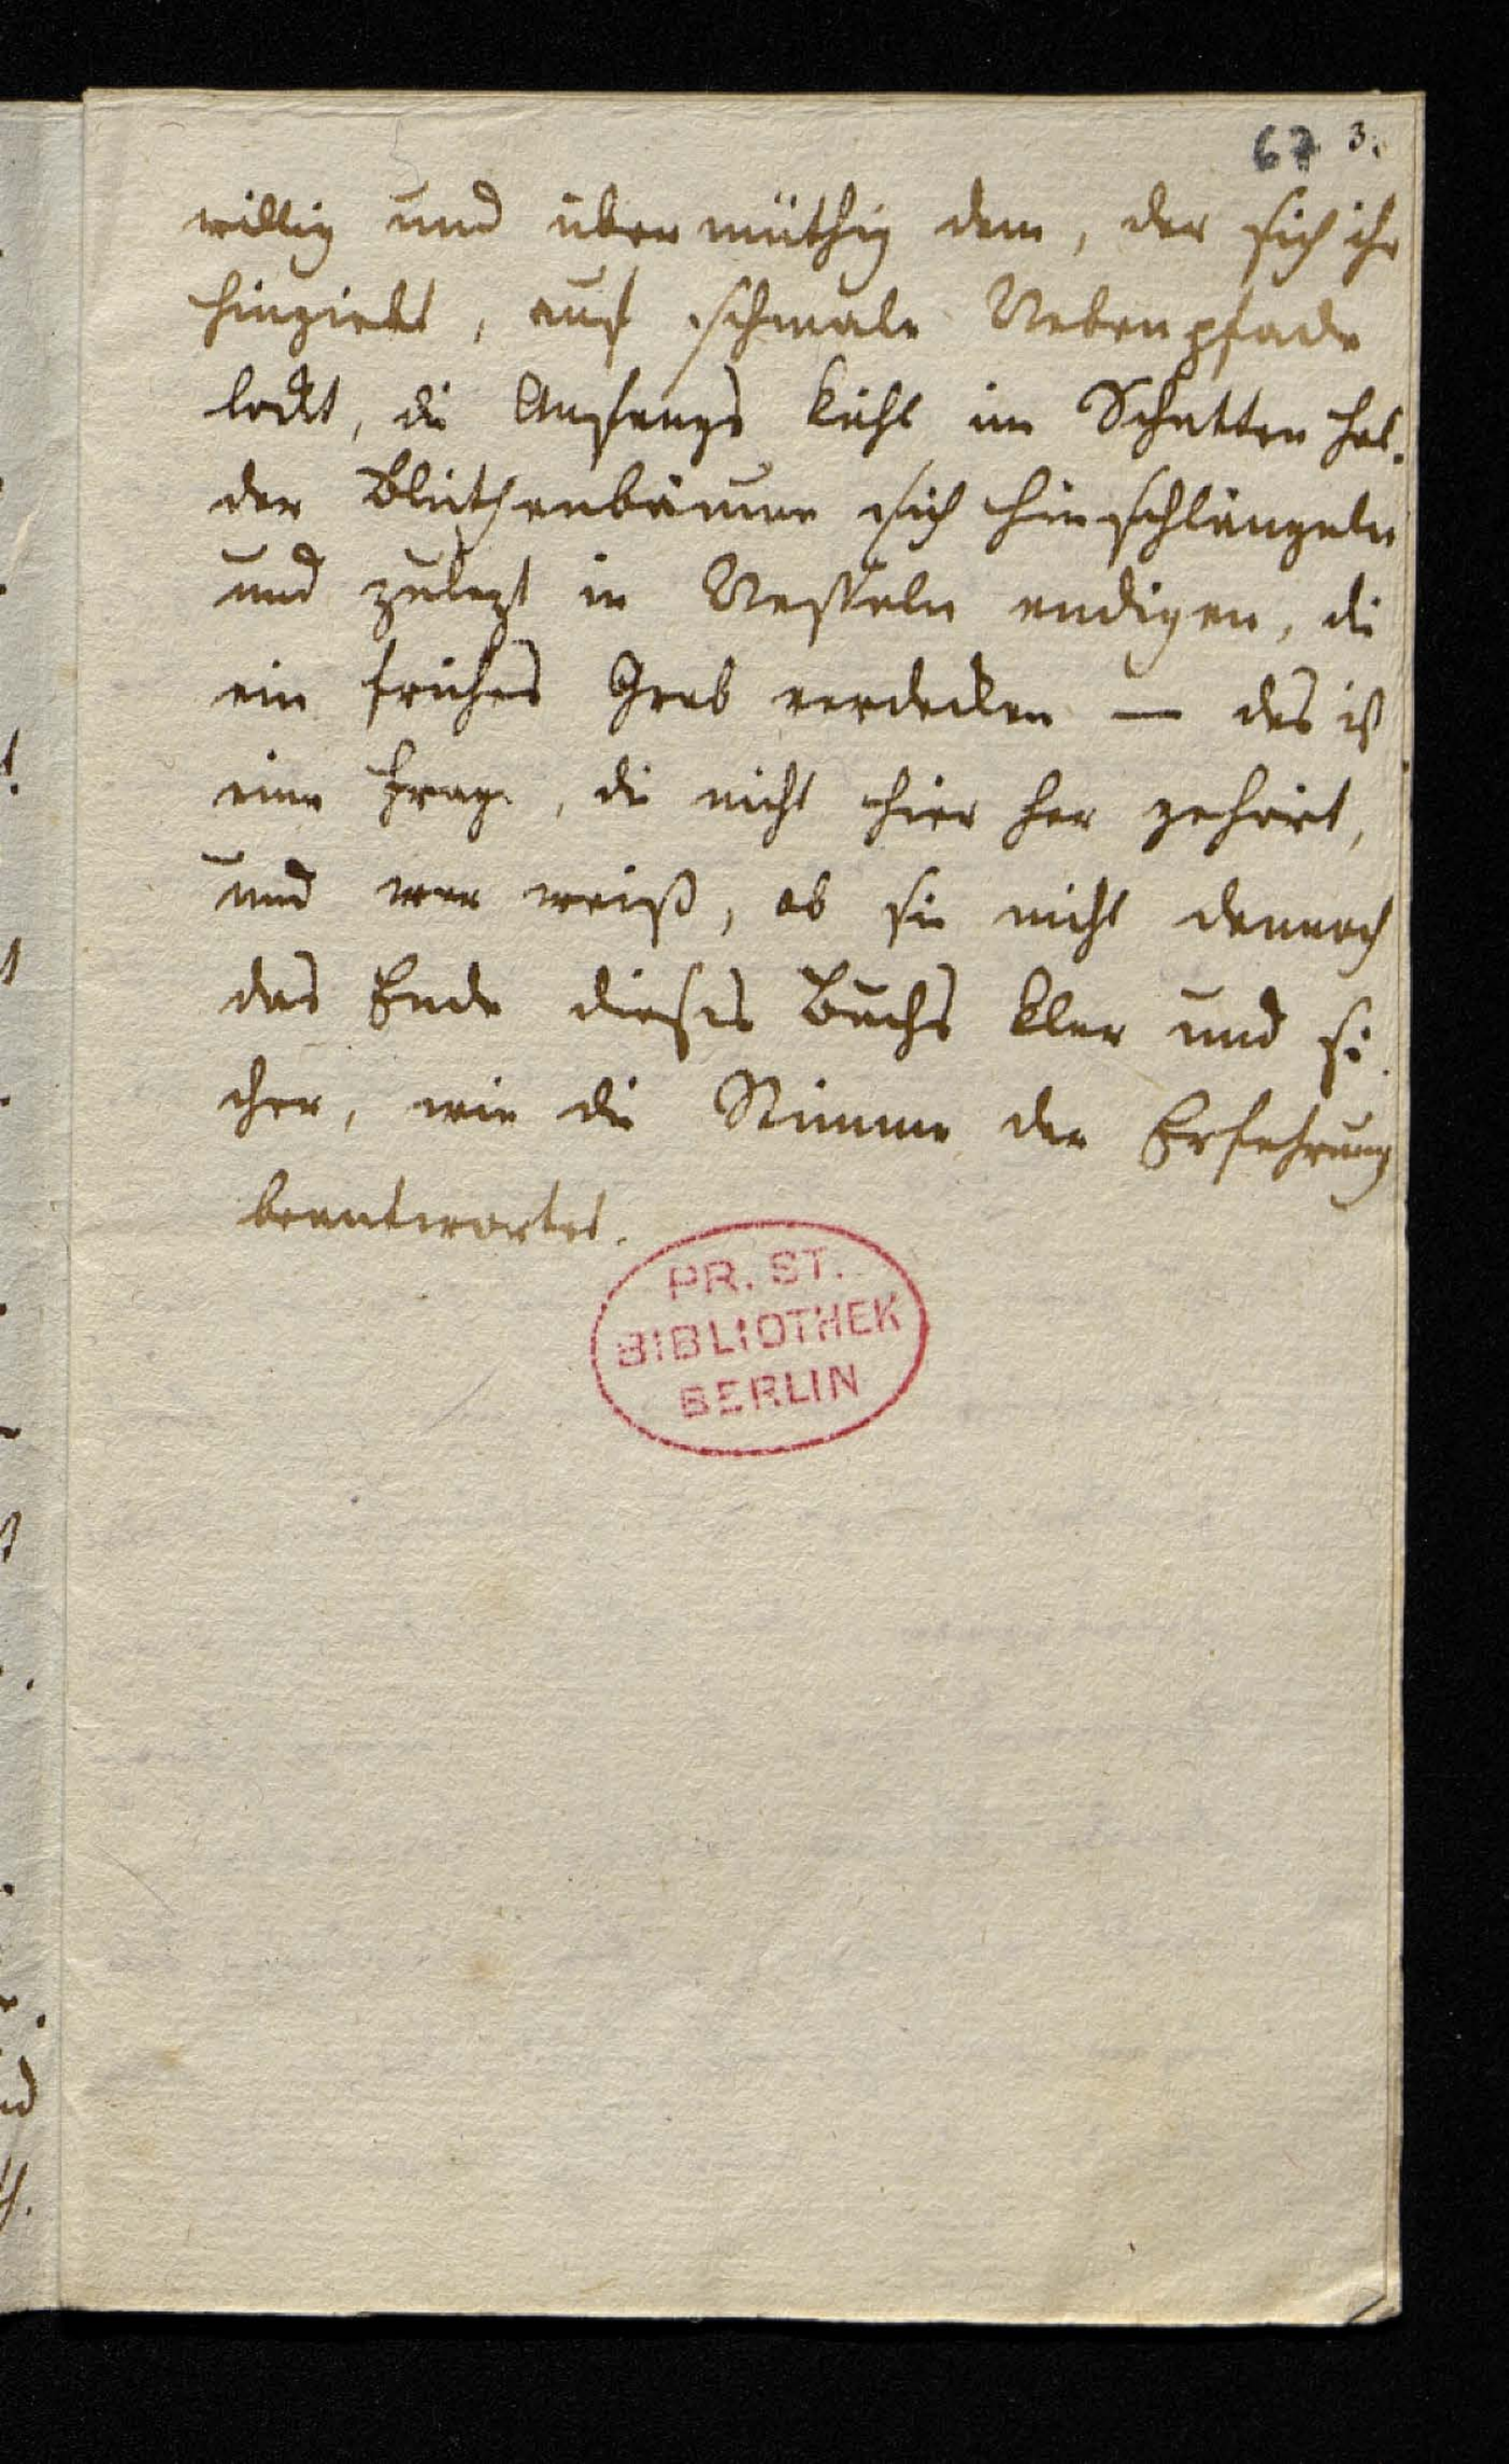 67 3.
willig und übermüthig dem, der sich ihr
hingiebt, auf schmale Nebenpfade
lockt, die Anfangs kühl im Schatten hol-
der Blüthenbäume sich hinschlängeln
und zulezt in Nesseln endigen, die
ein frühes Grab verdecken — das ist
eine Frage, die nicht hier her gehört,
und wer weiß, ob sie nicht dennoch
das Ende dieses Buchs klar und si-
cher, wie die Stimme der Erfahrung
beantwortet.
PR. ST.
BIBLIOTHEK
BERLIN